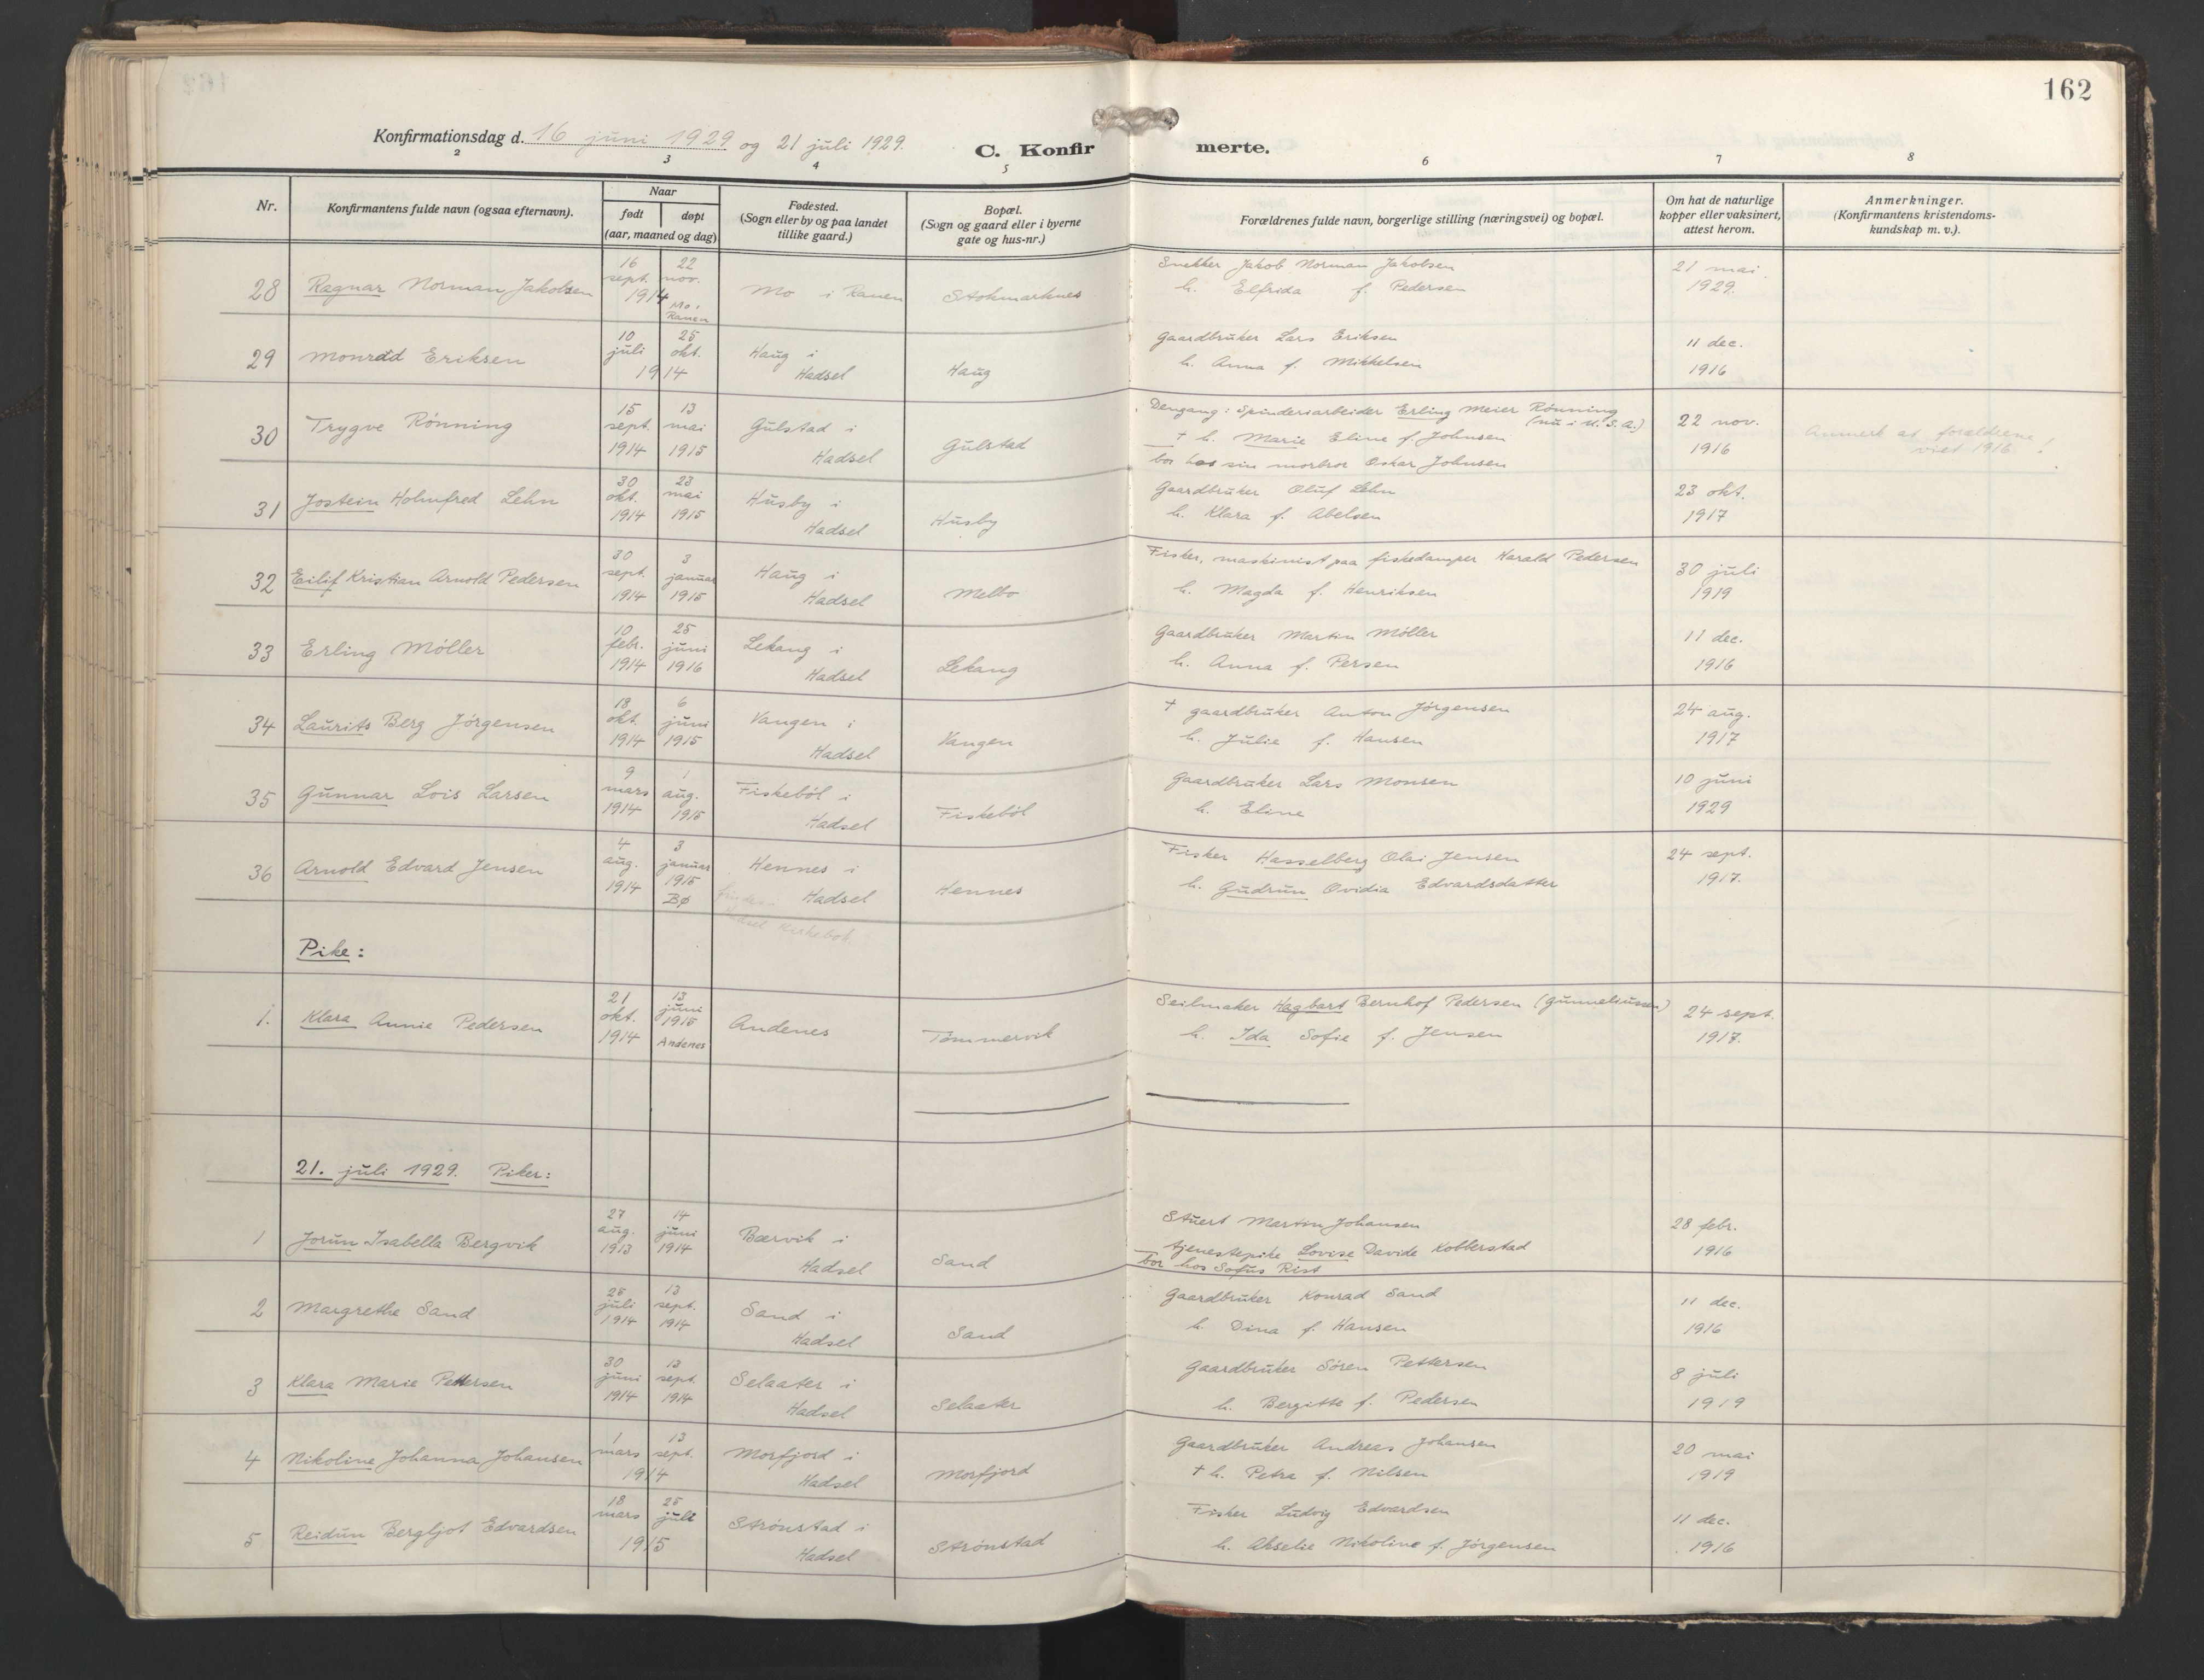 162
Konfirmationsdag d. 16 juni 1929 og 21 juli 1929.
C. Konfirmerte.
2 3 4 5 6 7 8
Nr.
Konfirmantens fulde navn (ogsaa efternavn).
Naar
født døpt
(aar, maaned og dag)
Fødested.
(Sogn eller by og paa landet
tillike gaard.)
Bopæl.
(Sogn og gaard eller i byerne
gate og hus-nr.)
Forældrenes fulde navn, borgerlige stilling (næringsvei) og bopæl.
Om hat de naturlige
kopper eller vaksinert,
attest herom.
Anmerkninger.
(Konfirmantens kristendoms-
kundskap m. v.).
28 Ragnar Norman Jakobsen
16 sept. 22 nov.
1914
Mo i Ranen
Mo i Ranen
Stokmarknes
Snekker Jakob Norman Jakobsen
h. Elfrida f. Pedersen
21 mai
1929.
29 Monrad Eriksen
10 juli 25 okt.
1914
Haug i
Hadsel
Haug
Gaardbruker Lars Eriksen
h. Anna f. Mikkelsen
11 dec.
1916
30 Trygve Rönning
15 sept. 1914
13 mai 1915
Gulstad i
Hadsel
Gulstad
Dengang: Spinderiarbeider Erling Meier Rönning
(nu i U.S.A.)
† h. Marie Eline f. Johnsen
bor hos sin morbror Oskar Johnsen
22 nov.
1916
Anmerk at forældrene
viet 1916!
31 Jostein Holmfred Lehn
30 okt. 1914
23 mai 1915
Husby i
Hadsel
Husby
Gaardbruker Oluf Lehn
h. Klara f. Abelsen
23 okt.
1917
32 Eilif Kristian Arnold Pedersen
30 sept. 1914
3 januar 1915
Haug i
Hadsel
Melbo
Fisker, maskinist paa fiskedamper Harald Pedersen
h. Magda f. Henriksen
30 juli
1919
33 Erling Möller
10 febr. 1914
25 juni 1916
Lekang i
Hadsel
Lekang
Gaardbruker Martin Möller
h. Anna f. Persen
11 dec.
1916
34 Laurits Berg Jörgensen
18 okt. 1914
6 juni 1915
Vangen i
Hadsel
Vangen
† gaardbruker Anton Jörgensen
h. Julie f. Hansen
24 aug.
1917
35 Gunnar Lois Larsen
9 mars 1914
1 aug. 1915
Fiskeböl i
Hadsel
Fiskeböl
Gaardbruker Lars Monsen
h. Eline
10 juni
1929
36 Arnold Edvard Jensen
4 aug. 1914
3 januar 1915
Bø
Hennes i
Hadsel
Hadsel kirkebok
Hennes
Fisker Hasselberg Olai Jensen
h. Gudrun Ovidia Edvardsdatter
24 sept.
1917.
Pike:
1. Klara Annie Pedersen
21 okt. 1914
13 juni 1915
Andenes
Andenes
Tömmervik
Seilmaker Hagbart Bernhof Pedersen
h. Ida Sofie f. Jensen
24 sept.
1917.
21. juli 1929. Piker:
1 Jorun Isabella Bergvik
27 aug. 1913
14 juni 1914
Bærvik i
Hadsel
Sand
Stuert Martin Johansen
tjenestepike Lovise Davide Kobberstad
bor hos Sofus Rist
28 febr.
1916
2 Margrethe Sand
26 juli 1914
13 sept. 1914
Sand i
Hadsel
Sand
Gaardbruker Konrad Sand
h. Dina f. Hansen
11 dec.
1916
3 Klara Marie Pettersen
30 juni 1914
13 sept. 1914
Selaater i
Hadsel
Selaater
Gaardbruker Sören Pettersen
h. Bergitte f. Pedersen
8 juli
1919
4 Nikoline Johanna Johansen
1 mars 13 sept.
1914
Morfjord i
Hadsel
Morfjord
Gaardbruker Andreas Johansen
† h. Petra f. Nilsen
20 mai
1919
5 Reidun Bergljot Edvardsen
18 mars 25 juli
1915
Strönstad i
Hadsel
Strönstad
Fisker Ludvig Edvardsen
h. Akselie Nikoline f. Jörgensen
11 dec.
1916